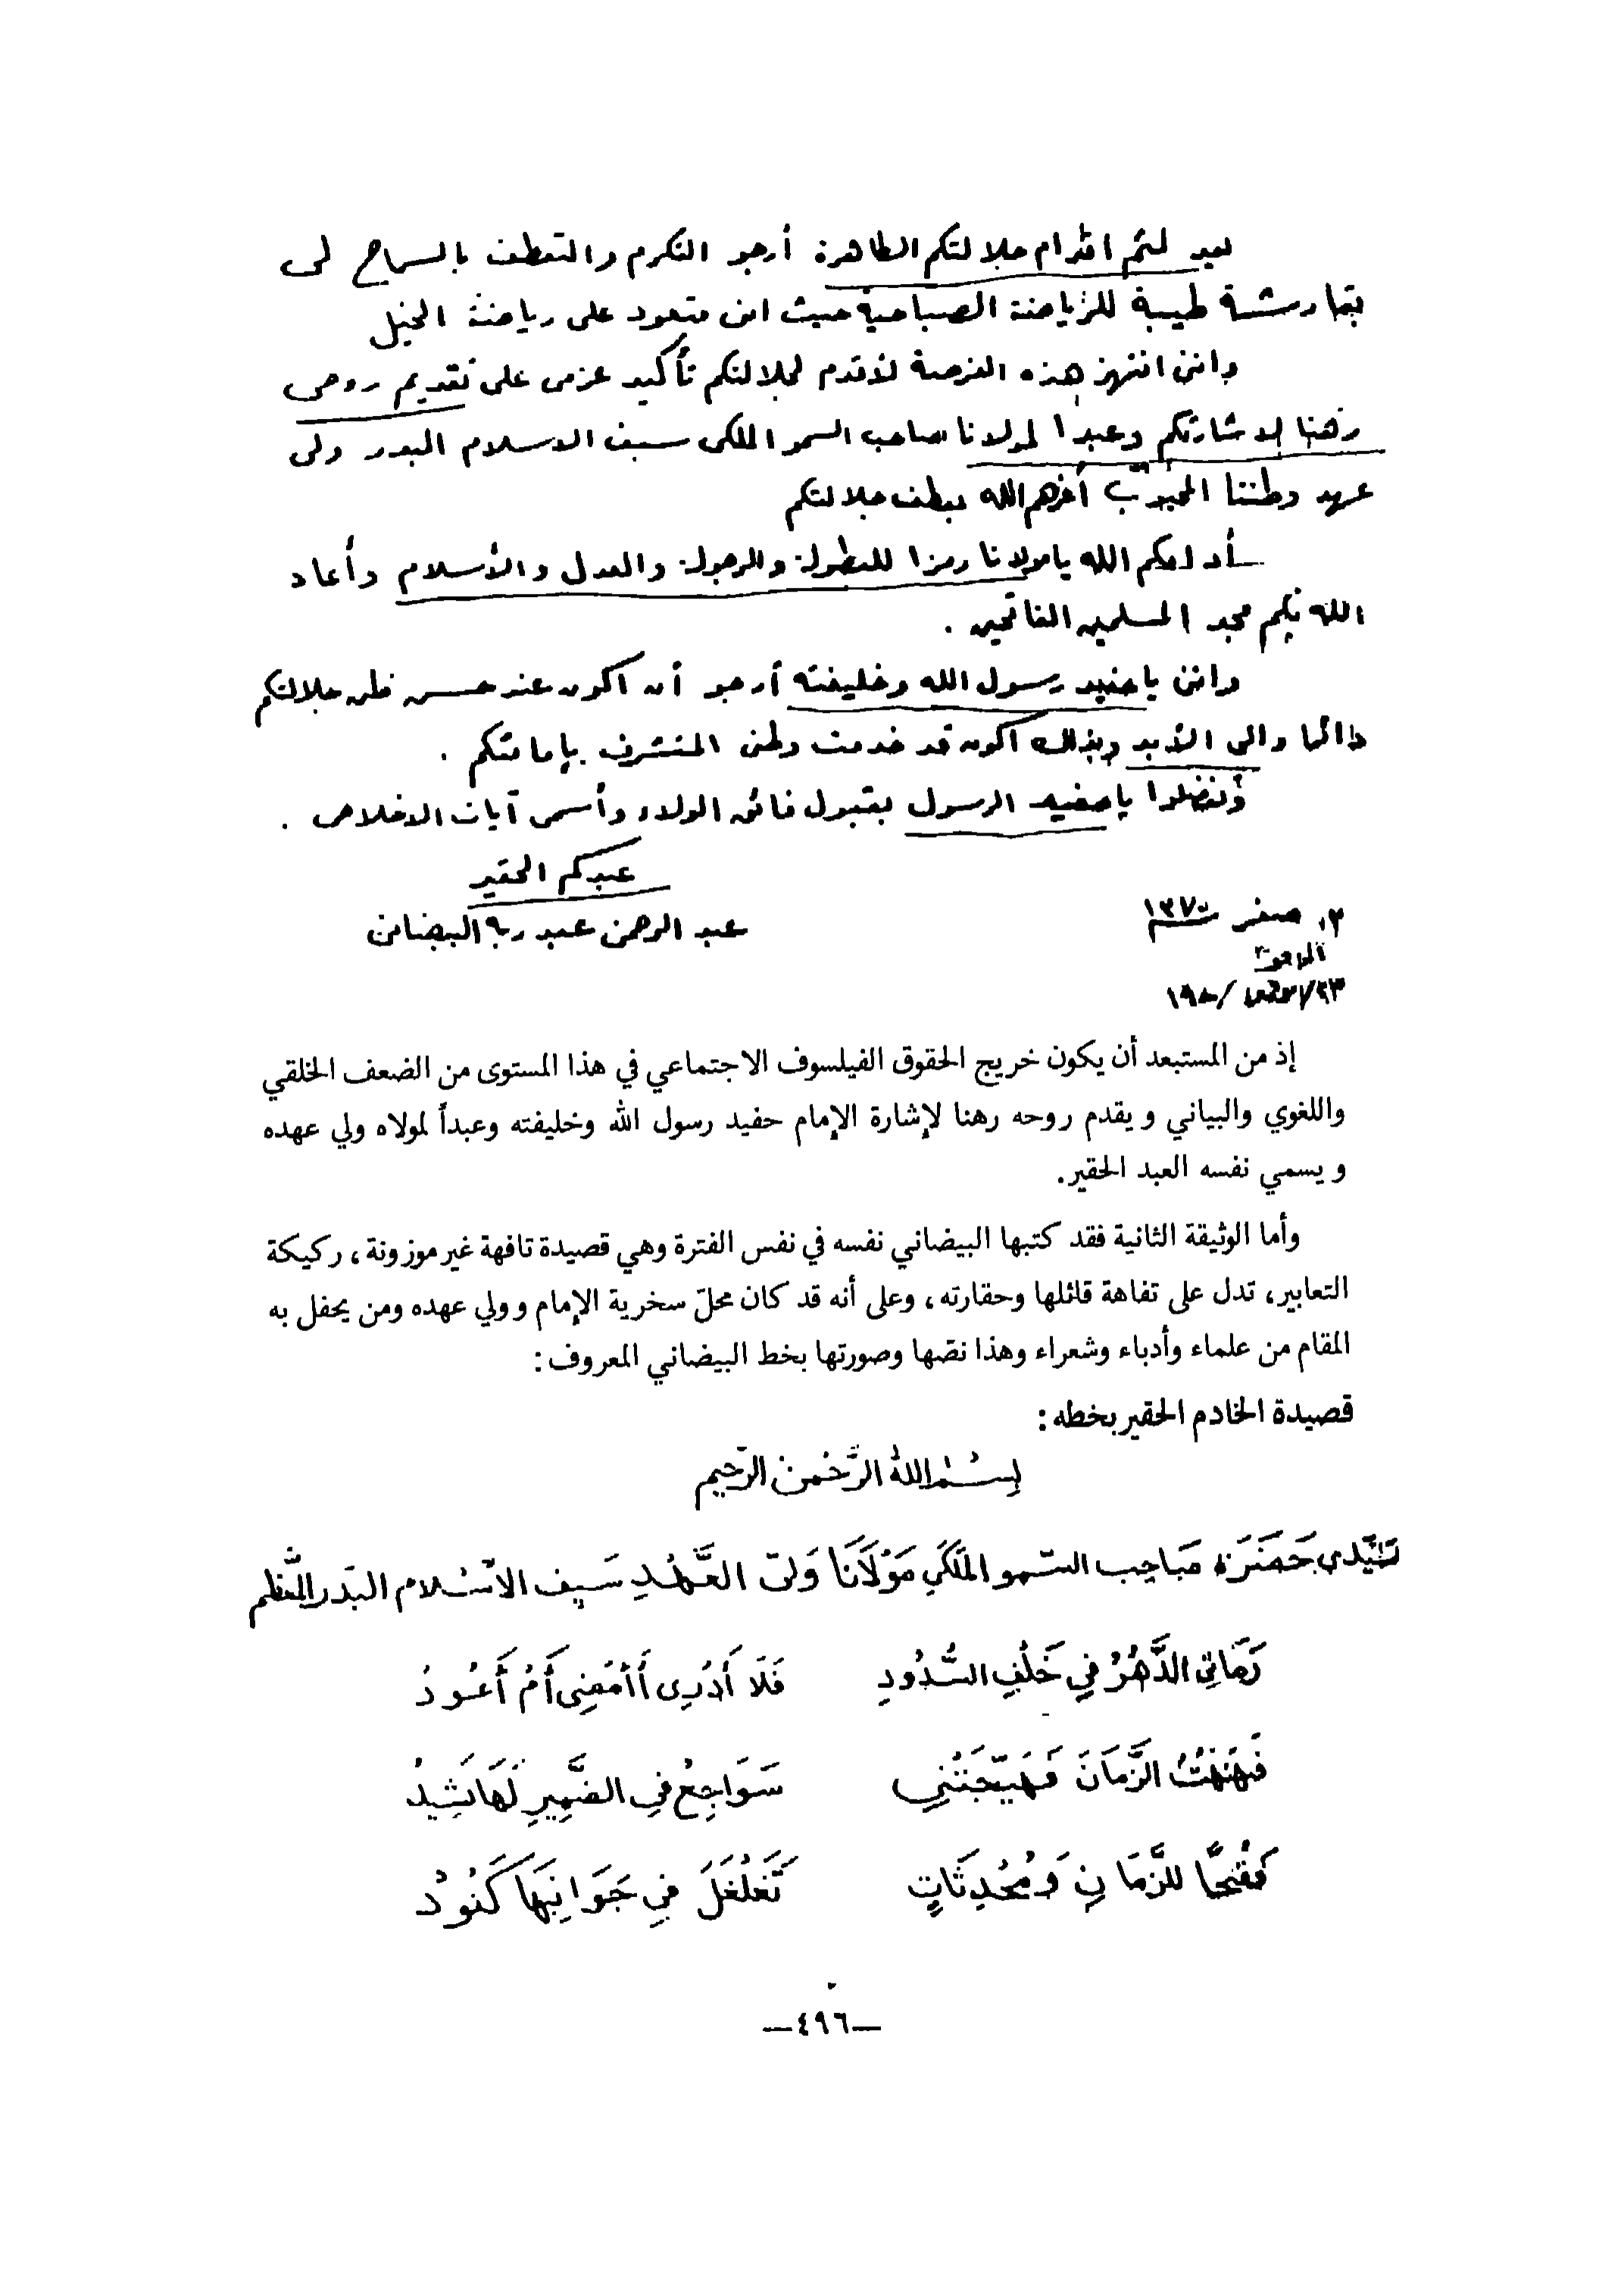 بعد لثم اقدام جلالتكم الطاهرة أرجو التكرم والتعطف بالسماح لى
طيبة للرياضة الصباحية حيث انى متعود على رياضة الخيل
واننى انتهز هذه الفرصة لأقدم لجلالتكم تأكيد عزمى على تقديم روحى
رهنا لإشارتكم وعبدا لمولانا صاحب السمو الملكى سيف الاسلام البدر ولى
عهد وطننا المحبوب أعزهم الله بعطف جلالتكم
أدامكم الله يا مولانا رمزا للبطولة والرجولة والعدل والأسلام وأعاد
الله بكم مجد المسلمين الفاتحين .
واننى يا حفيد رسول الله وخليفته أرجو أن اكون عند حسن ظن جلالتكم
دائما والى الأبد وبذلك اكون قد خدمت وطنى المتشرف بإمامتكم .
وتفضلوا يا حفيد الرسول بقبول فائق الولاء وأسمى آيات الاخلاص .
عبدكم الحقير
صفر ١٣٧٠ عبد الرحمن عبد ربه البيضانى
الموافق
إذ من المستبعد أن يكون خريج الحقوق الفيلسوف الاجتماعي في هذا المستوى من الضعف الخلقي
واللغوي والبياني ويقدم روحه رهنا لإشارة الإمام حفيد رسول الله وخليفته وعبداً لمولاه ولي عهده
ويسمي نفسه العبد الحقير.
وأما الوثيقة الثانية فقد كتبها البيضاني نفسه في نفس الفترة وهي قصيدة تافهة غير موزونة، ركيكة
التعابير، تدل على تفاهة قائلها وحقارته، وعلى أنه قد كان محلّ سخرية الإمام وولي عهده ومن يحفل به
المقام من علماء وأدباء وشعراء وهذا نصّها وصورتها بخط البيضاني المعروف:
قصيدة الخادم الحقير بخطه:
بِسْمِ اللهِ الرَّحْمنِ الرَّحِيم
سَيِّدى حَضْرَة صَاحِب السّمو الملَكي مَوْلَانَا وَلىّ العَهْدِ سَيف الاسْلام البَدر المعَظم
رَمَانِى الدَّهْرُ فِي خَلْفِ السُّدُودِ فَلَا أَدْرِى أَأَمْضِى أَمْ أَعُودُ
فَهَنْهَنْتُ الزَّمَانَ فَهَيَّجَتْنِي سَوَاجِعُ فِي الضَّمِيرِ لَهَا نَشِيدُ
فَقُبْحًا لِلزَّمَانِ وَمُحْدِثَاتٍ تَغَلْغَلَ فِي جَوَانِبَهَا كَنُودُ
—٤٩٦—